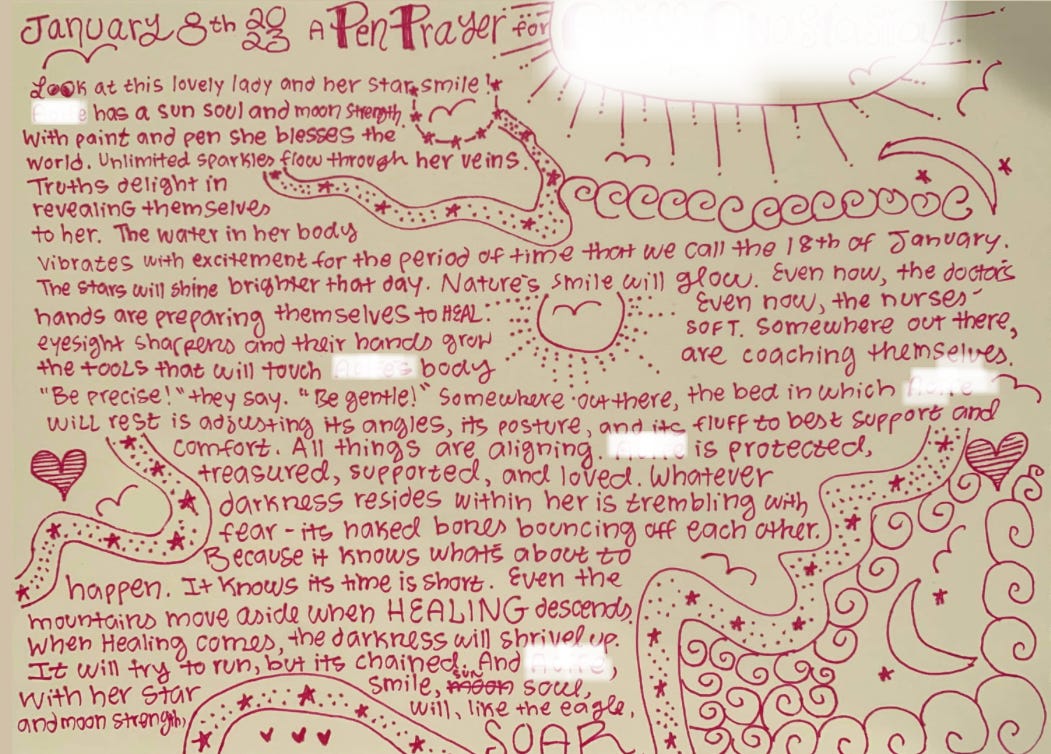 January 8th 2023 A Pen Prayer for
Look at this lovely lady and her star smile!
has a sun soul and moon strength.
With paint and pen she blesses the
world. Unlimited sparkles flow through her veins.
Truths delight in
revealing themselves
to her. The water in her body
vibrates with excitement for the period of time that we call the 18th of January.
The stars will shine brighter that day. Nature's smile will glow. Even now, the doctor's
hands are preparing themselves to HEAL. Even now, the nurses'
eyesight sharpens and their hands grow SOFT. Somewhere out there,
the tools that will touch body are coaching themselves.
"Be precise!" they say. "Be gentle!" Somewhere out there, the bed in which
will rest is adjusting its angles, its posture, and its fluff to best support and
comfort. All things are aligning. is protected,
treasured, supported, and loved. Whatever
darkness resides within her is trembling with
fear - its naked bones bouncing off each other.
Because it knows what's about to
happen. It knows its time is short. Even the
mountains move aside when HEALING descends.
When Healing comes, the darkness will shrivel up.
It will try to run, but its chained. And ,
with her star smile, moon sun soul,
and moon strength, will, like the eagle,
SOAR